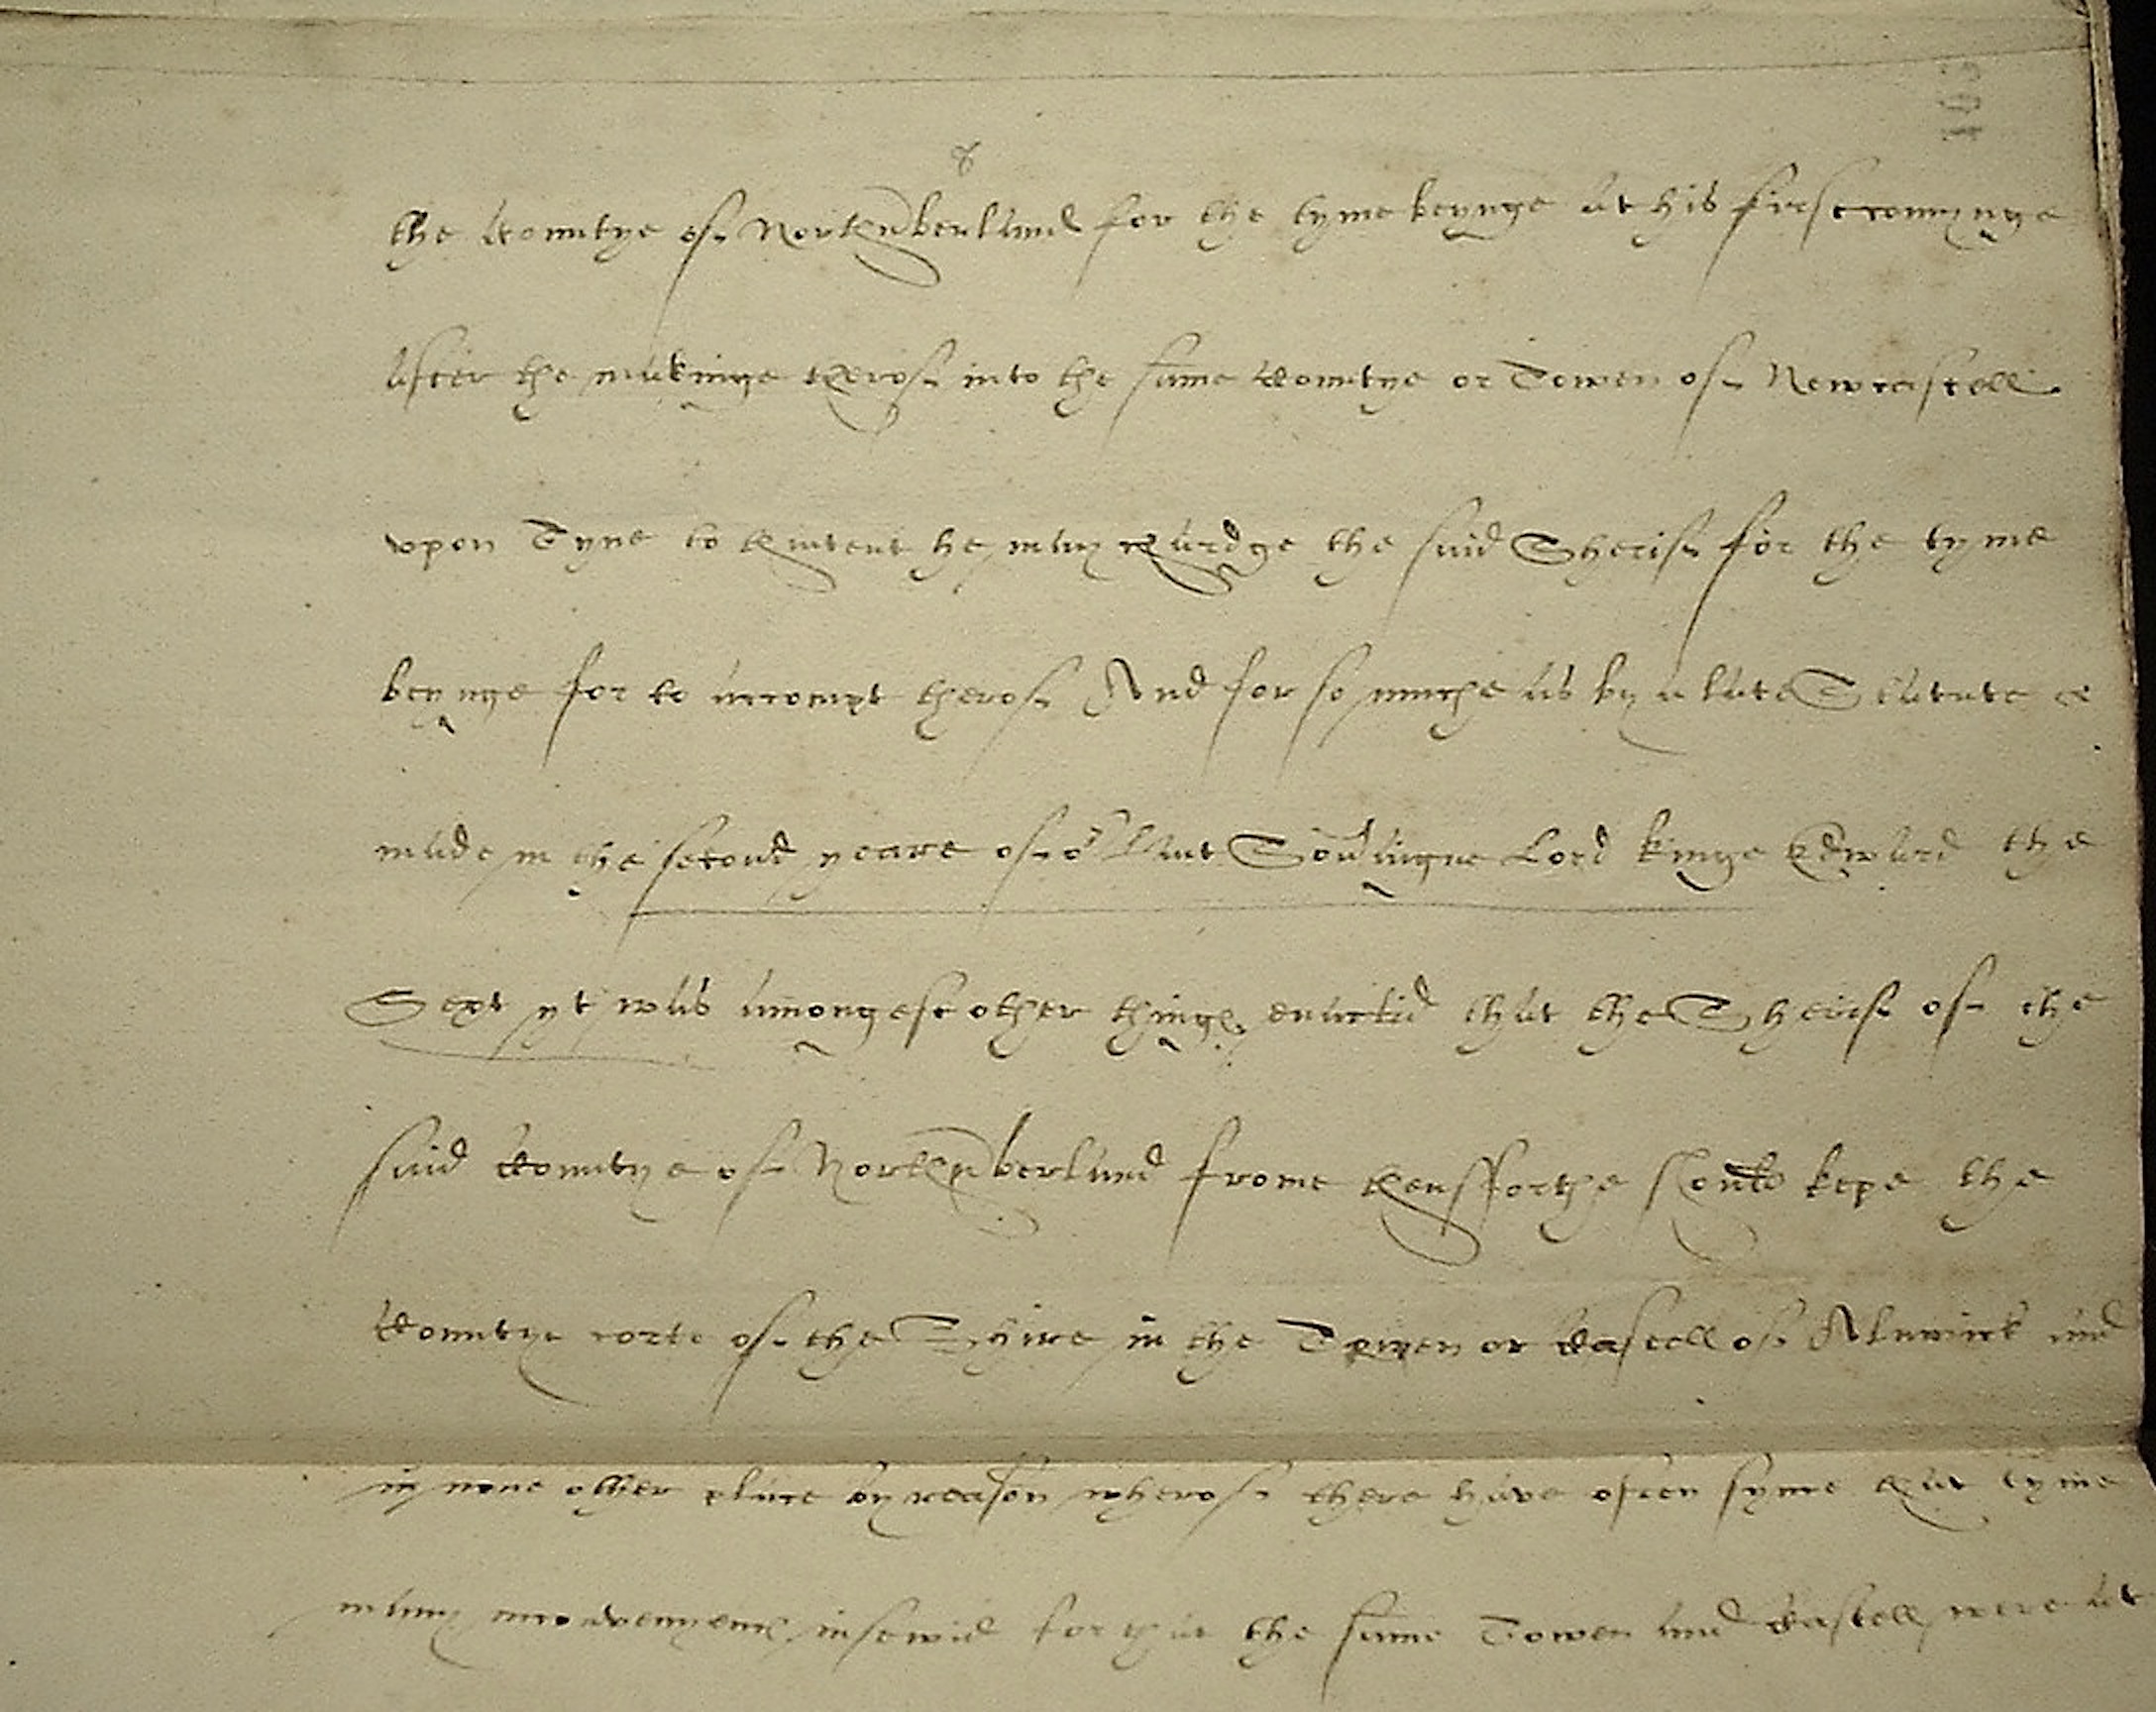 103
the Countye of Northũberland for the tyme beynge at his first comynge
after the makinge therof into the same Countye or Towen of Newcastell
vpon Tyne to thintent he may chardge the said Sherif for the tyme
beynge for to accompt therof And for so muche as by a late Statute
made in the second yeare of oʳ late Soũaigne Lord kinge Edward the
Sext yt was amongest other things enactid that the Sherif of the
said Countye of Northũberland frome thensforthe shoulde kepe the
Countye corte of the Shire in the Towen or Castell of Alnwick and
in none other place by reason wherof there have often syns that tyme
many inconvenyencs insewid for that the same Towen and Castell were at